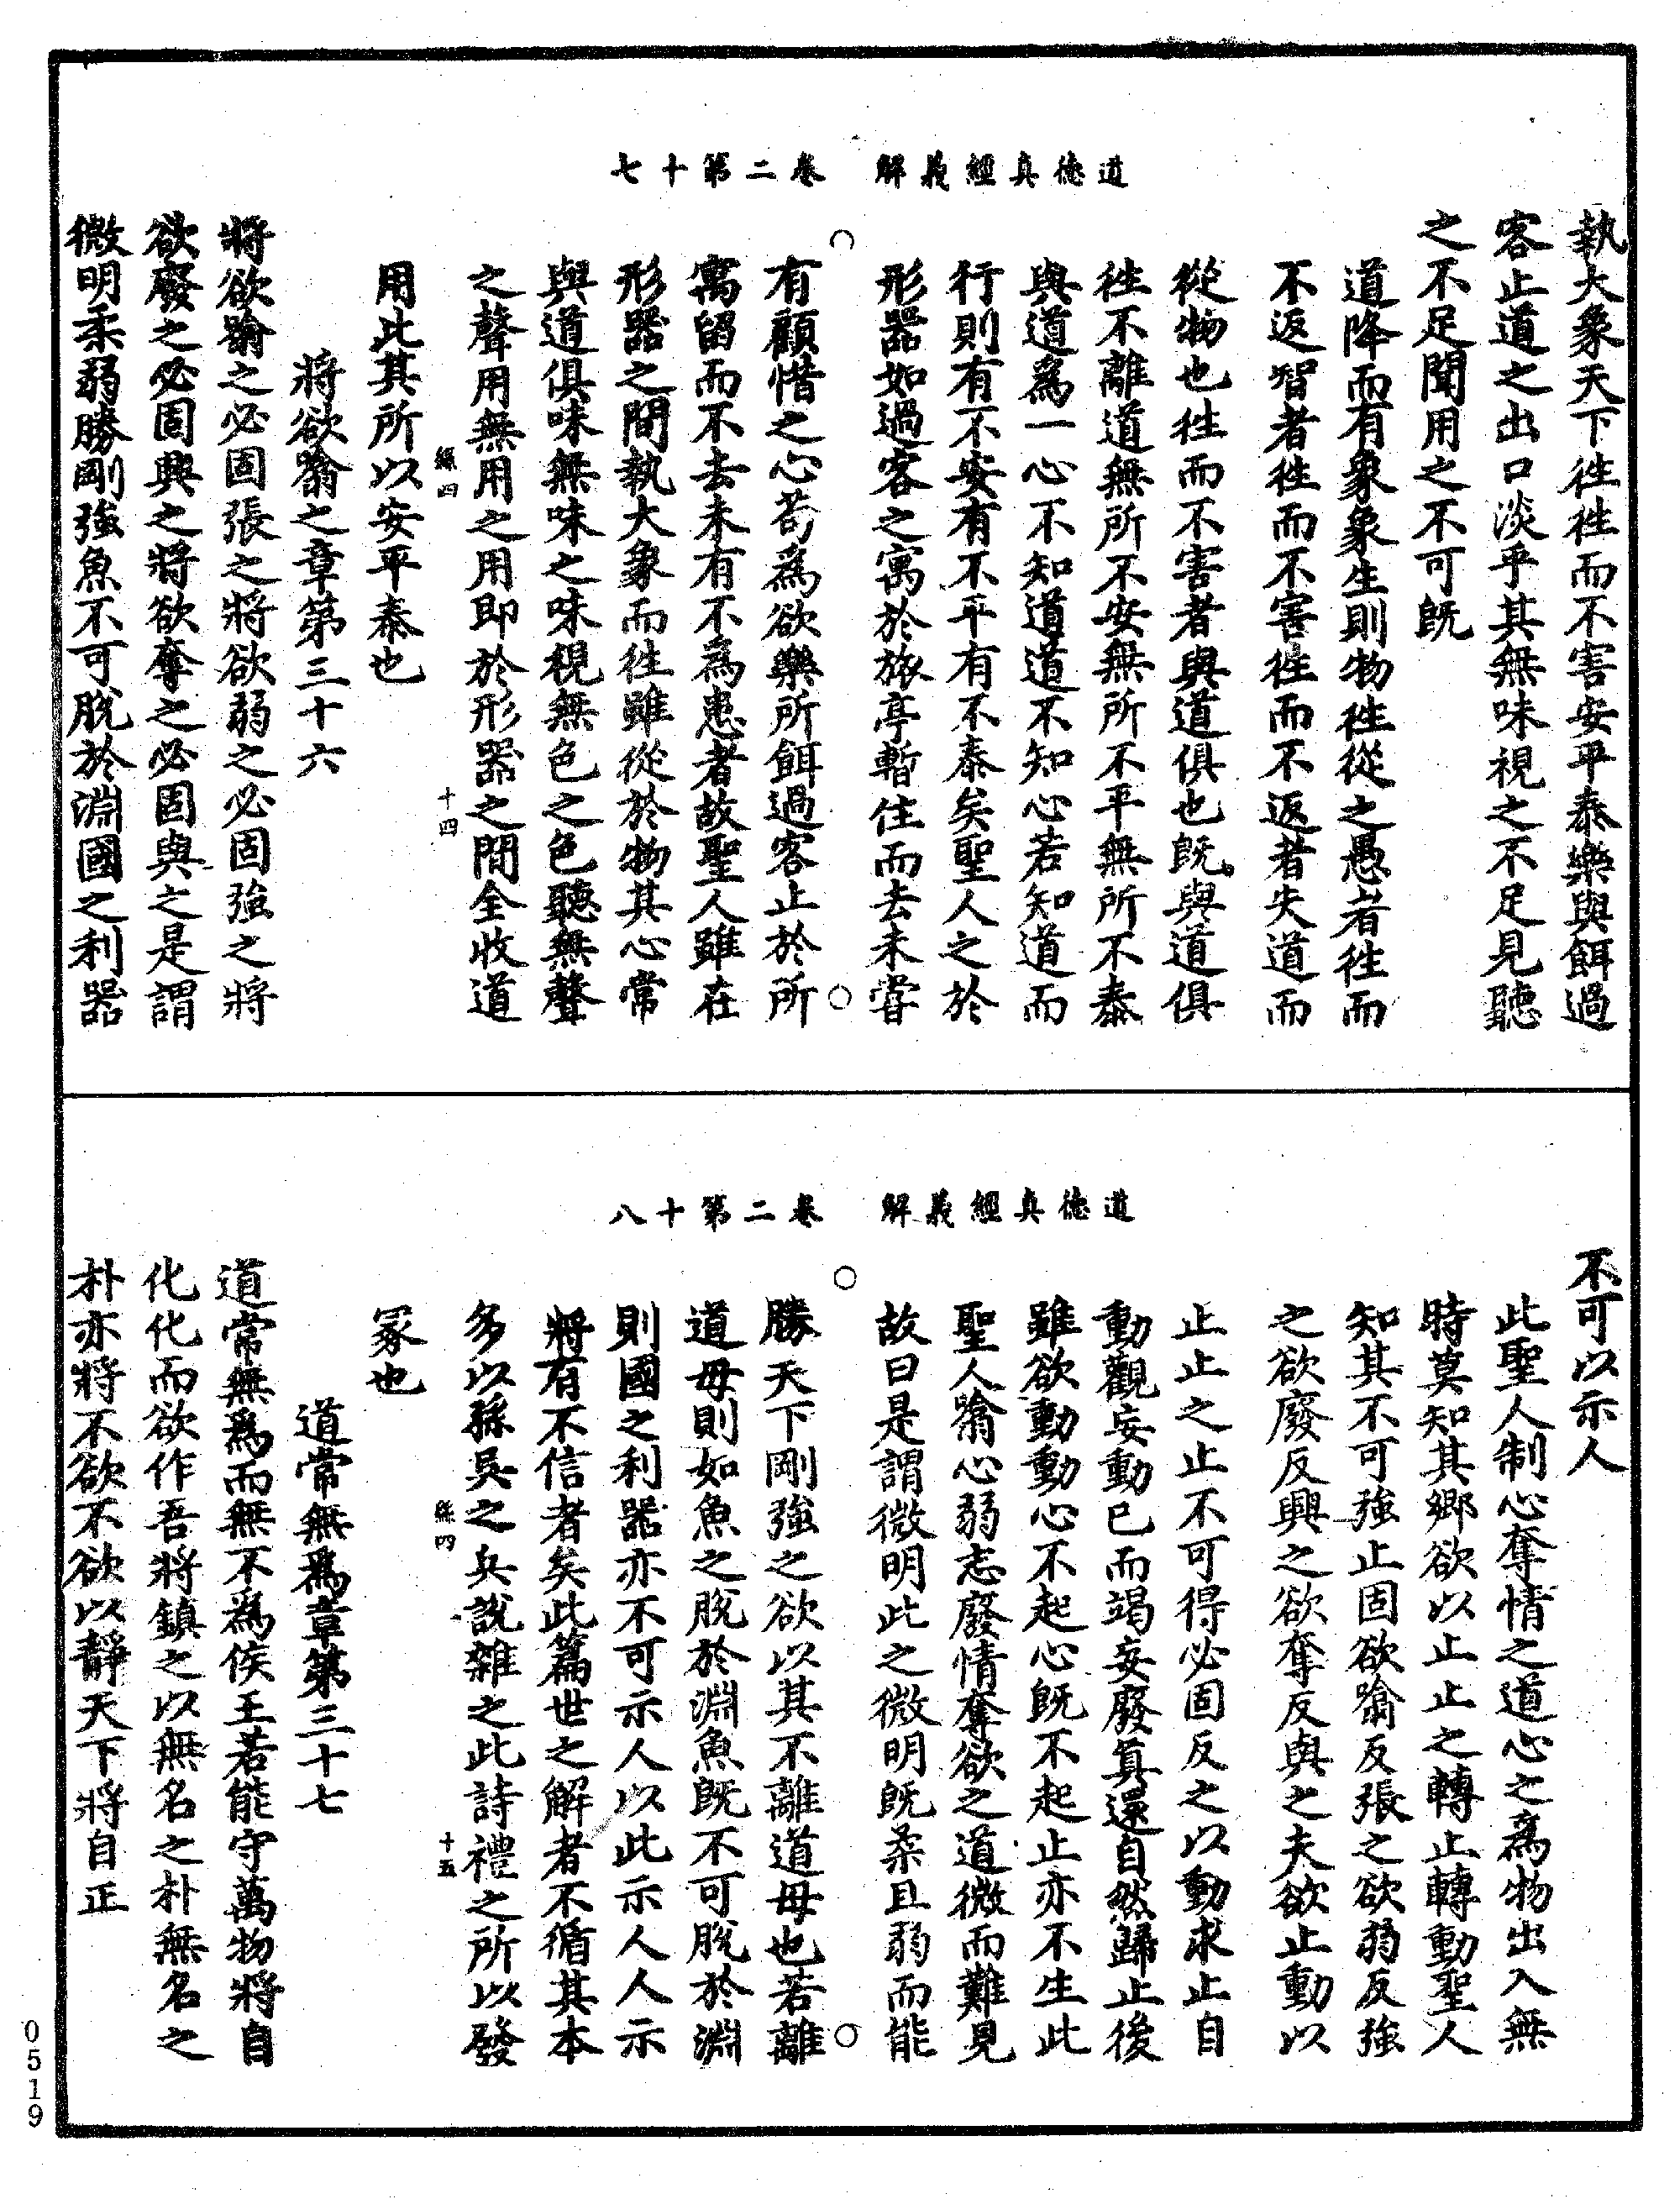 道德真經義解　卷二第十七
執大象天下徃徃而不害安平泰樂與餌過
客止道之出口淡乎其無味視之不足見聽
之不足聞用之不可既
道降而有象象生則物徃從之愚者徃而
不返智者徃而不害徃而不返者失道而
從物也徃而不害者與道俱也既與道俱
徃不離道無所不安無所不平無所不泰
與道爲一心不知道道不知心若知道而
行則有不安有不平有不泰矣聖人之於
形器如過客之寓於旅亭暫住而去未嘗
有顧惜之心苟爲欲樂所餌過客止於所
寓留而不去未有不爲患者故聖人雖在
形器之間執大象而徃雖從於物其心常
與道俱味無味之味視無色之色聽無聲
之聲用無用之用即於形器之間全收道
絲四　十四
用此其所以安平泰也
將欲噏之章第三十六
將欲噏之必固張之將欲弱之必固強之將
欲廢之必固興之將欲奪之必固與之是謂
微明柔弱勝剛強魚不可脫於淵國之利器
道德真經義解　卷二第十八
不可以示人
此聖人制心奪情之道心之爲物出入無
時莫知其鄉欲以止止之轉止轉動聖人
知其不可強止固欲噏反張之欲弱反強
之欲廢反興之欲奪反與之夫欲止動以
止止之止不可得必固反之以動求止自
動觀妄動已而竭妄廢真還自然歸止後
雖欲動動心不起心既不起止亦不生此
聖人噏心弱志廢情奪欲之道微而難見
故曰是謂微明此之微明既柔且弱而能
勝天下剛強之欲以其不離道母也若離
道母則如魚之脫於淵魚既不可脫於淵
則國之利器亦不可示人以此示人人示
將有不信者矣此篇世之解者不循其本
多以孫吳之兵說雜之此詩禮之所以發
絲四　十五
冢也
道常無爲章第三十七
道常無爲而無不爲侯王若能守萬物將自
化化而欲作吾將鎮之以無名之朴無名之
朴亦將不欲不欲以靜天下將自正
0519